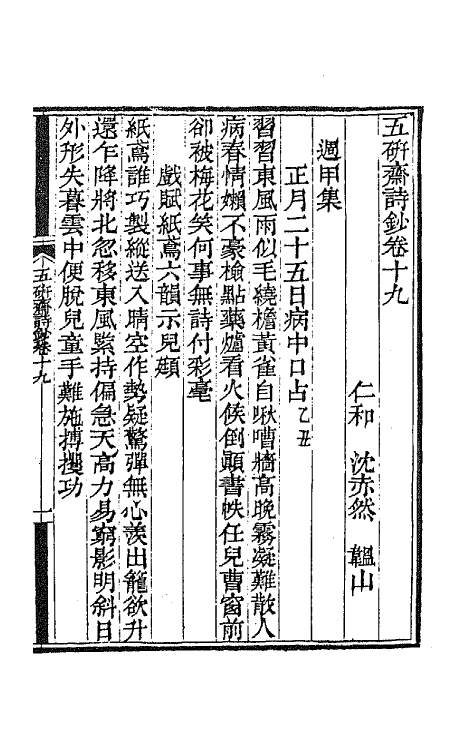 五研齋詩鈔卷十九
仁和　沈赤然　韞山
週甲集
正月二十五日病中口占乙丑
習習東風雨似毛繞檐黃雀自啾嘈牆高晚霧凝難散人
病春情嬾不豪檢點藥爐看火候倒顛書帙任兒曹窗前
卻被梅花笑何事無詩付彩毫
戲賦紙鳶六韻示兒
紙鳶誰巧製縱送入晴空作勢疑驚彈無心羨出籠欲升
還乍降將北忽移東風緊持偏急天高力易窮影明斜日
外形失暮雲中便脫兒童手難施搏攫功
五研齋詩鈔卷十九
一